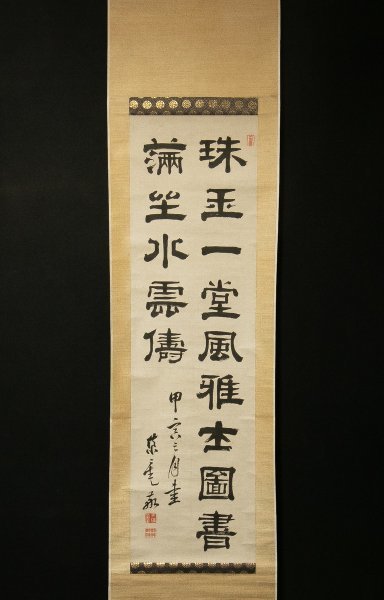 珠玉一堂風雅士圖書
滿坐水雲儔
甲寅三月書